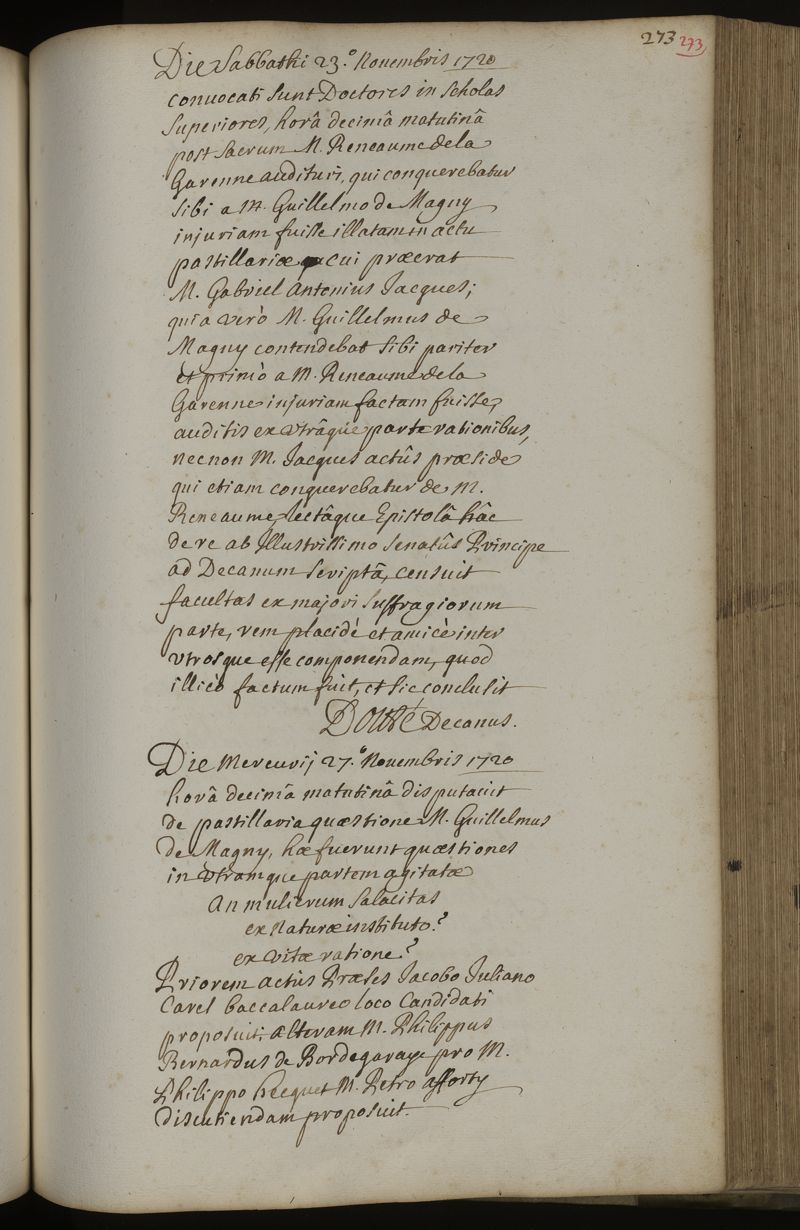 273 273
Die Sabbathi 23.º Novembris 1720
convocati sunt Doctores in scholas
superiores, horâ decimâ matutinâ
post sacrum M. Reneaume de la
Garenne audituri, qui conquerebatur
sibi a M. Guillelmo de Magny
injuriam fuisse illatam in actu
pastillariæ cui præerat
M. Gabriel Antonius Jacques;
quia verò M. Guillelmus de
Magny contendebat sibi pariter
et primò a M. Reneaume de la
Garenne injuriam factam fuisse,
auditis ex utrâque parte rationibus,
necnon M. Jacques actûs præside
qui etiam conquerebatur de M.
Reneaume, lectâque Epistolâ hâc
de re ab Illustrissimo senatûs Principe
ad Decanum scriptâ, censuit
facultas ex majori suffragiorum
parte, rem placidè et amicè inter
utrosque esse componendam, quod
illicò factum fuit, et sic conclusit
Doutté Decanus.
Die Mercurij 27.º Novembris 1720
horâ decimâ matutinâ disputavit
de pastillaria quæstione M. Guillelmus
de Magny, hæ fuerunt quæstiones
in utramque partem agitatæ
An mulierum salacitas
ex naturæ instituto.?
ex vitæ ratione.?
Priorem actûs Præses Jacobo Juliano
Carel baccalaureo loco Candidati
proposuit; alteram M. Philippus
Bernardus de Bordegaraye pro M.
Philippo hecquet M. Petro afforty
discutiendam proposuit.